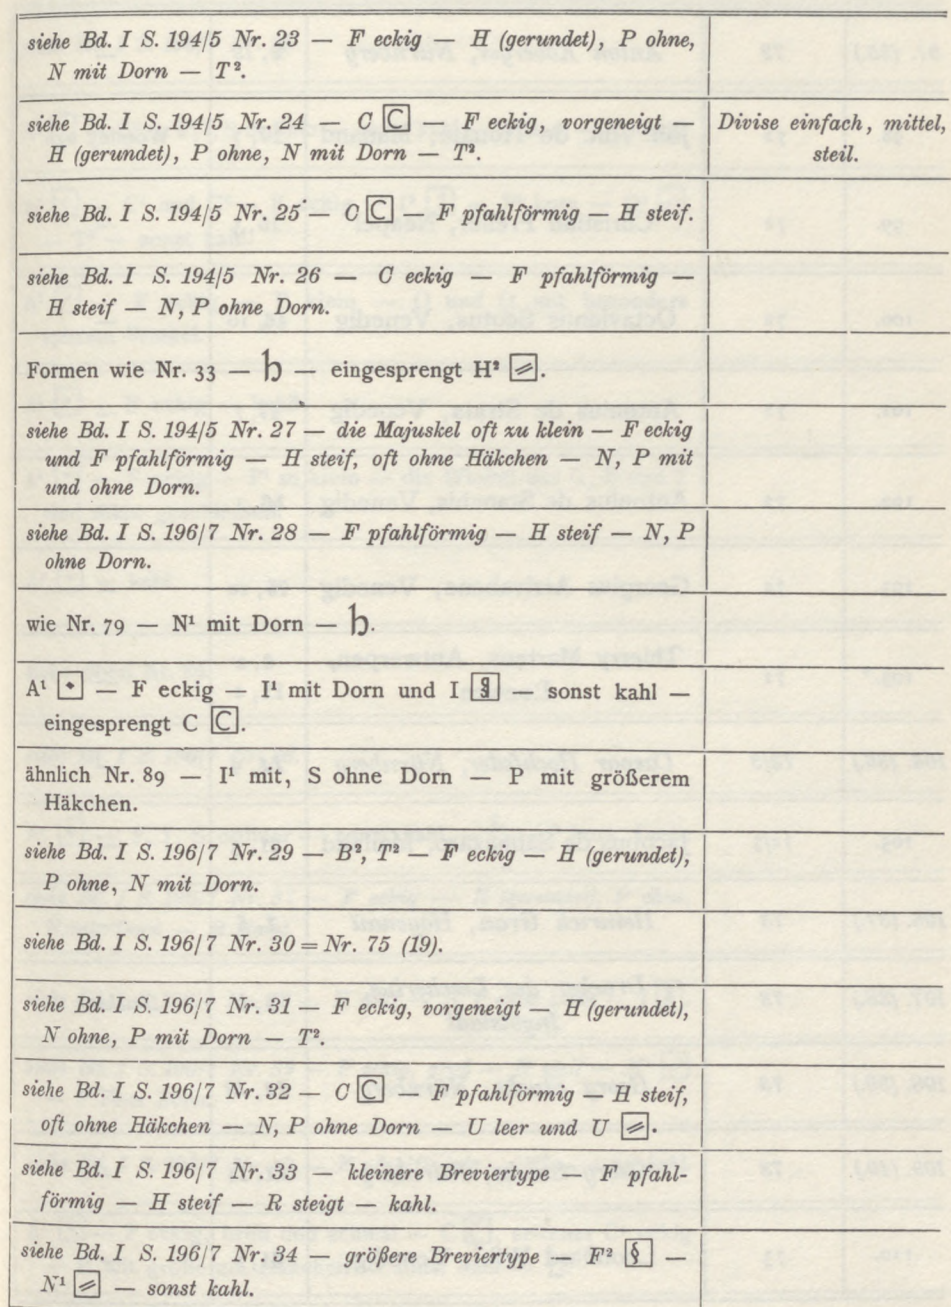 siehe Bd. I S. 194/5 Nr. 23 — F eckig — H (gerundet), P ohne,
N mit Dorn — T².
siehe Bd. I S. 194/5 Nr. 24 — C C — F eckig, vorgeneigt —
H (gerundet), P ohne, N mit Dorn — T².
Divise einfach, mittel,
steil.
siehe Bd. I S. 194/5 Nr. 25 — C C — F pfahlförmig — H steif.
siehe Bd. I S. 194/5 Nr. 26 — C eckig — F pfahlförmig —
H steif — N, P ohne Dorn.
Formen wie Nr. 33 — h — eingesprengt H² ⫽.
siehe Bd. I S. 194/5 Nr. 27 — die Majuskel oft zu klein — F eckig
und F pfahlförmig — H steif, oft ohne Häkchen — N, P mit
und ohne Dorn.
siehe Bd. I S. 196/7 Nr. 28 — F pfahlförmig — H steif — N, P
ohne Dorn.
wie Nr. 79 — N¹ mit Dorn — h.
A¹ — F eckig — I¹ mit Dorn und I § — sonst kahl —
eingesprengt C C.
ähnlich Nr. 89 — I¹ mit, S ohne Dorn — P mit größerem
Häkchen.
siehe Bd. I S. 196/7 Nr. 29 — B², T² — F eckig — H (gerundet),
P ohne, N mit Dorn.
siehe Bd. I S. 196/7 Nr. 30 = Nr. 75 (19).
siehe Bd. I S. 196/7 Nr. 31 — F eckig, vorgeneigt — H (gerundet),
N ohne, P mit Dorn — T².
siehe Bd. I S. 196/7 Nr. 32 — C C — F pfahlförmig — H steif,
oft ohne Häkchen — N, P ohne Dorn — U leer und U ⫽.
siehe Bd. I S. 196/7 Nr. 33 — kleinere Breviertype — F pfahl-
förmig — H steif — R steigt — kahl.
siehe Bd. I S. 196/7 Nr. 34 — größere Breviertype — F² § —
N¹ ⫽ — sonst kahl.